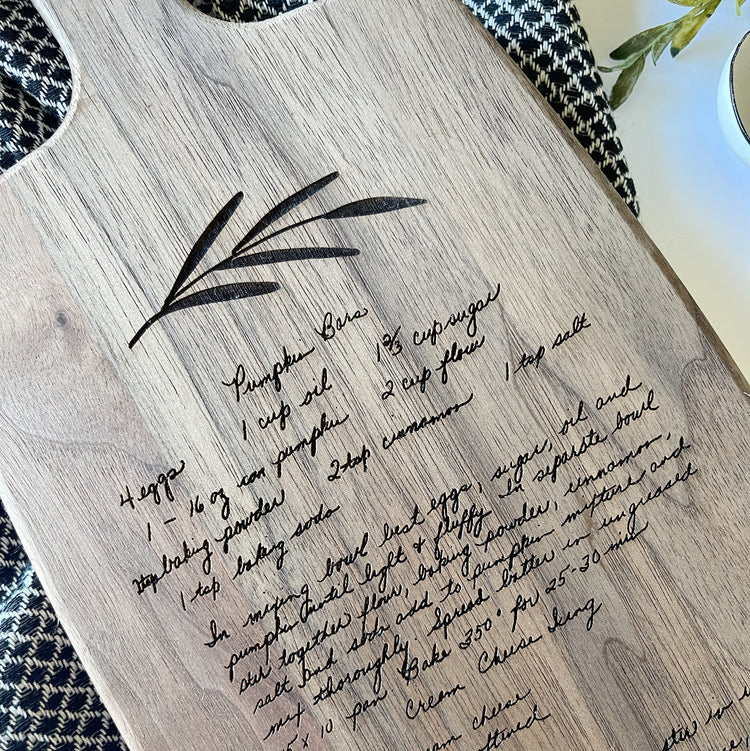 Pumpkin Bars
4 eggs 1 cup oil 1 2/3 cup sugar
1 - 16 oz can pumpkin 2 cup flour
baking powder 2 tsp cinnamon 1 tsp salt
1 tsp baking soda
In mixing bowl beat eggs, sugar, oil and
pumpkin until light & fluffy. In separate bowl
stir together flour, baking powder, cinnamon,
salt and soda add to pumpkin mixture and
mix thoroughly. Spread batter in ungreased
x 10 pan Bake 350° for 25-30 min
Cream Cheese Icing
cheese